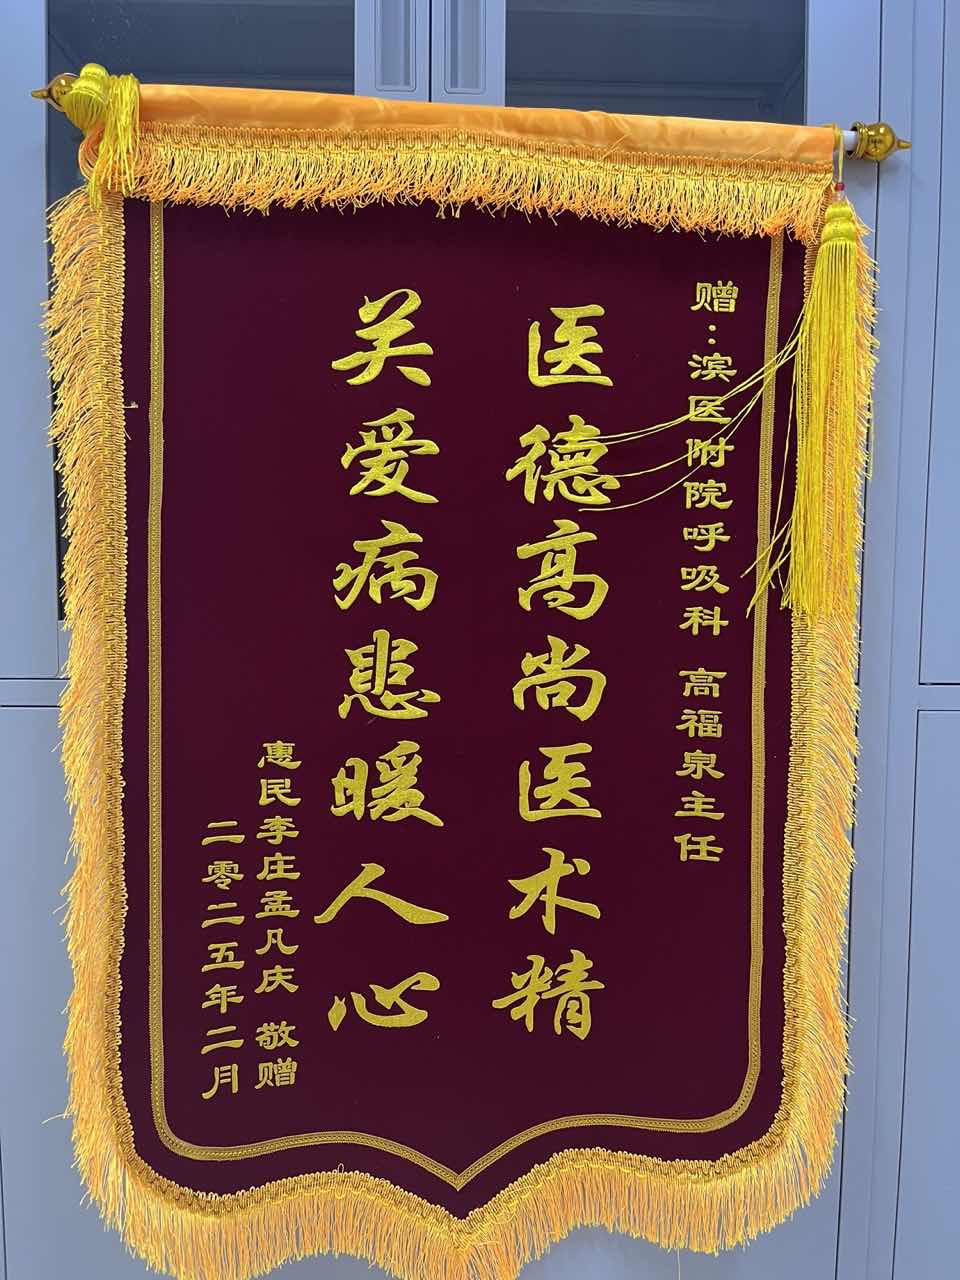 赠：滨医附院呼吸科 高福泉主任
医德高尚医术精
关爱病患暖人心
惠民李庄孟凡庆 敬赠
二零二五年二月